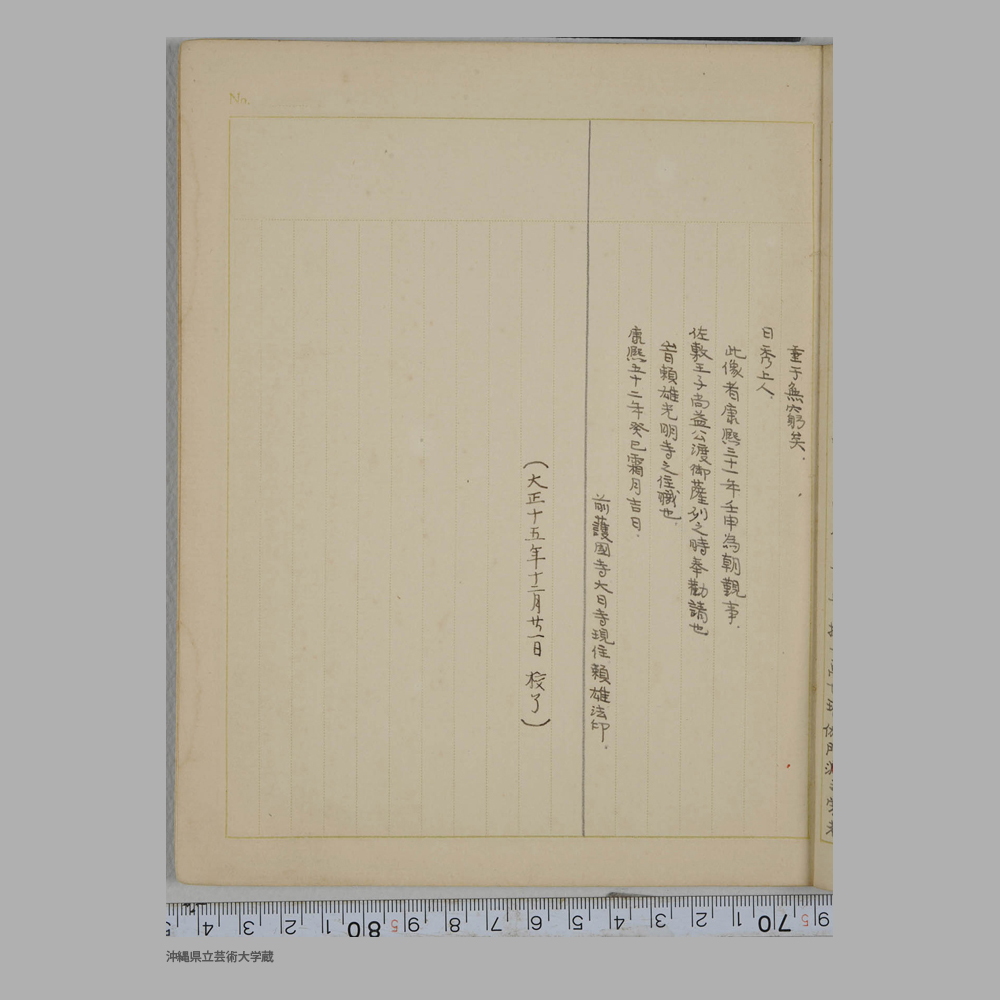 垂于無窮矣.
日秀上人.
此像者康熙三十一年壬申為朝覲事.
佐敷王子尚益公渡御薩列之時奉勧請也
昔頼雄光明寺之住職也.
康熙五十二年癸巳霜月吉日.
前護國寺大日寺現住頼雄法印.
(大正十五年十二月廿一日 校了)
No.
沖縄県立芸術大学蔵